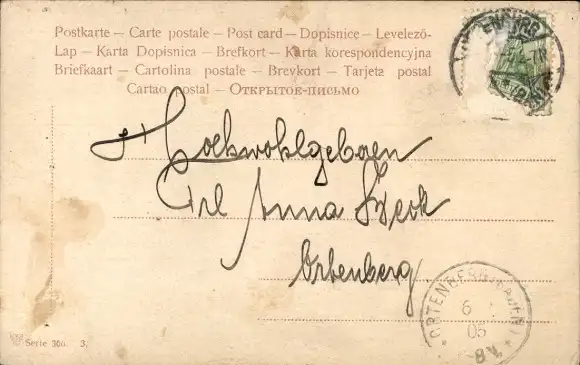 Postkarte – Carte postale – Post card – Dopisnice – Levelező-
Lap – Karta Dopisnica – Brefkort – Karta korespondencyjna
Briefkaart – Cartolina postale – Brevkort – Tarjeta postal
Cartao postal – Открытое-письмо
Hochwohlgeboren
Frl Anna Beck
Ortenberg
ORTENBERG
6
05
Serie 300. 3.